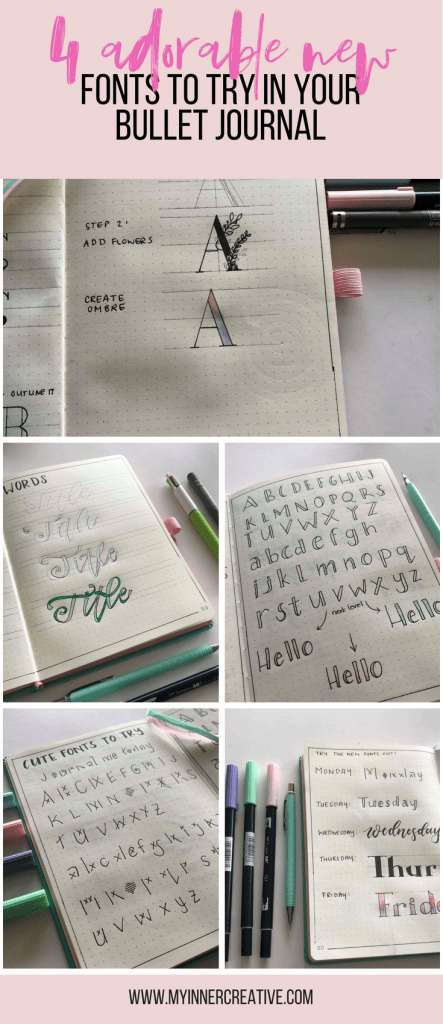 4 adorable new
FONTS TO TRY IN YOUR
BULLET JOURNAL
A
STEP 2:
ADD FLOWERS
A
CREATE
OMBRE
A
OUTLINE IT
B
WORDS
Title
Title
Title
Title
A B C D E F G H I J
K L M N O P Q R S
T U V W X Y Z
a b c d e f g h
i j k l m n o p q
r s t u v w x y z
next level
Hello
Hello
Hello
CUTE FONTS TO TRY
Journal me today
A B C D E F G H I J
K L M N
T U V W X Y Z
a b c d e f g h i j k
u v w x y z
TRY THE NEW FONTS OUT!
MONDAY: Monday
TUESDAY: Tuesday
WEDNESDAY: wednesday
THURSDAY: Thur
FRIDAY: Frid
50
WWW.MYINNERCREATIVE.COM